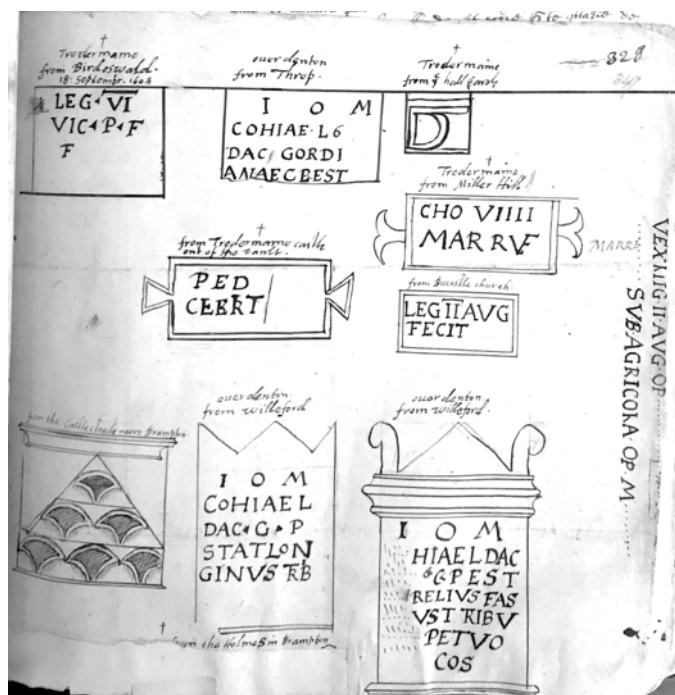 Tredermame
from Birdeswald.
18. September. 1604
LEG VI
VIC P F
F
over denton
from Throp.
I O M
COHIAE L6
DAC GORDI
ANAECBEST
Tredermaine
from ye hall garth
D
328
Tredermame
from Miller Hill
CHO VIIII
MARRVF
MARRE
from Tredermame castle
out of the vault.
PED
CEBRT
from Bucastle church.
LEG II AVG
FECIT
VEXIIIG·II·AVG·OP
SVB·AGRICOKA·OP·M
from the Castlesteeds neere Brampton.
over denton
from Willeford
I O M
COHIAEL
DAC G P
STATLON
GINVS TRB
from the Holmes in Brampton
over denton
from willeford.
I O M
HIAELDAC
G P EST
RELIVS FAS
VST RIBV
PETVO
COS